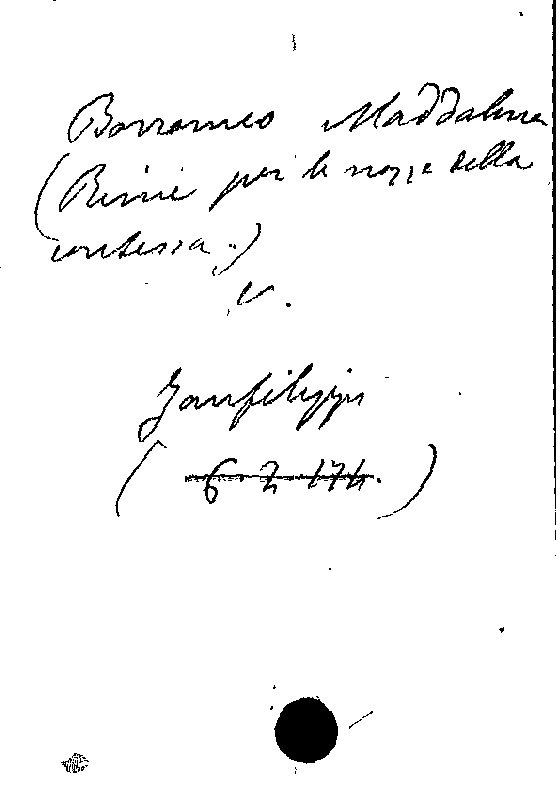 Borromeo Maddalena
(Rime per le nozze della
contessa..)
v.
Zanfilippi
( 6. 2. 174. )